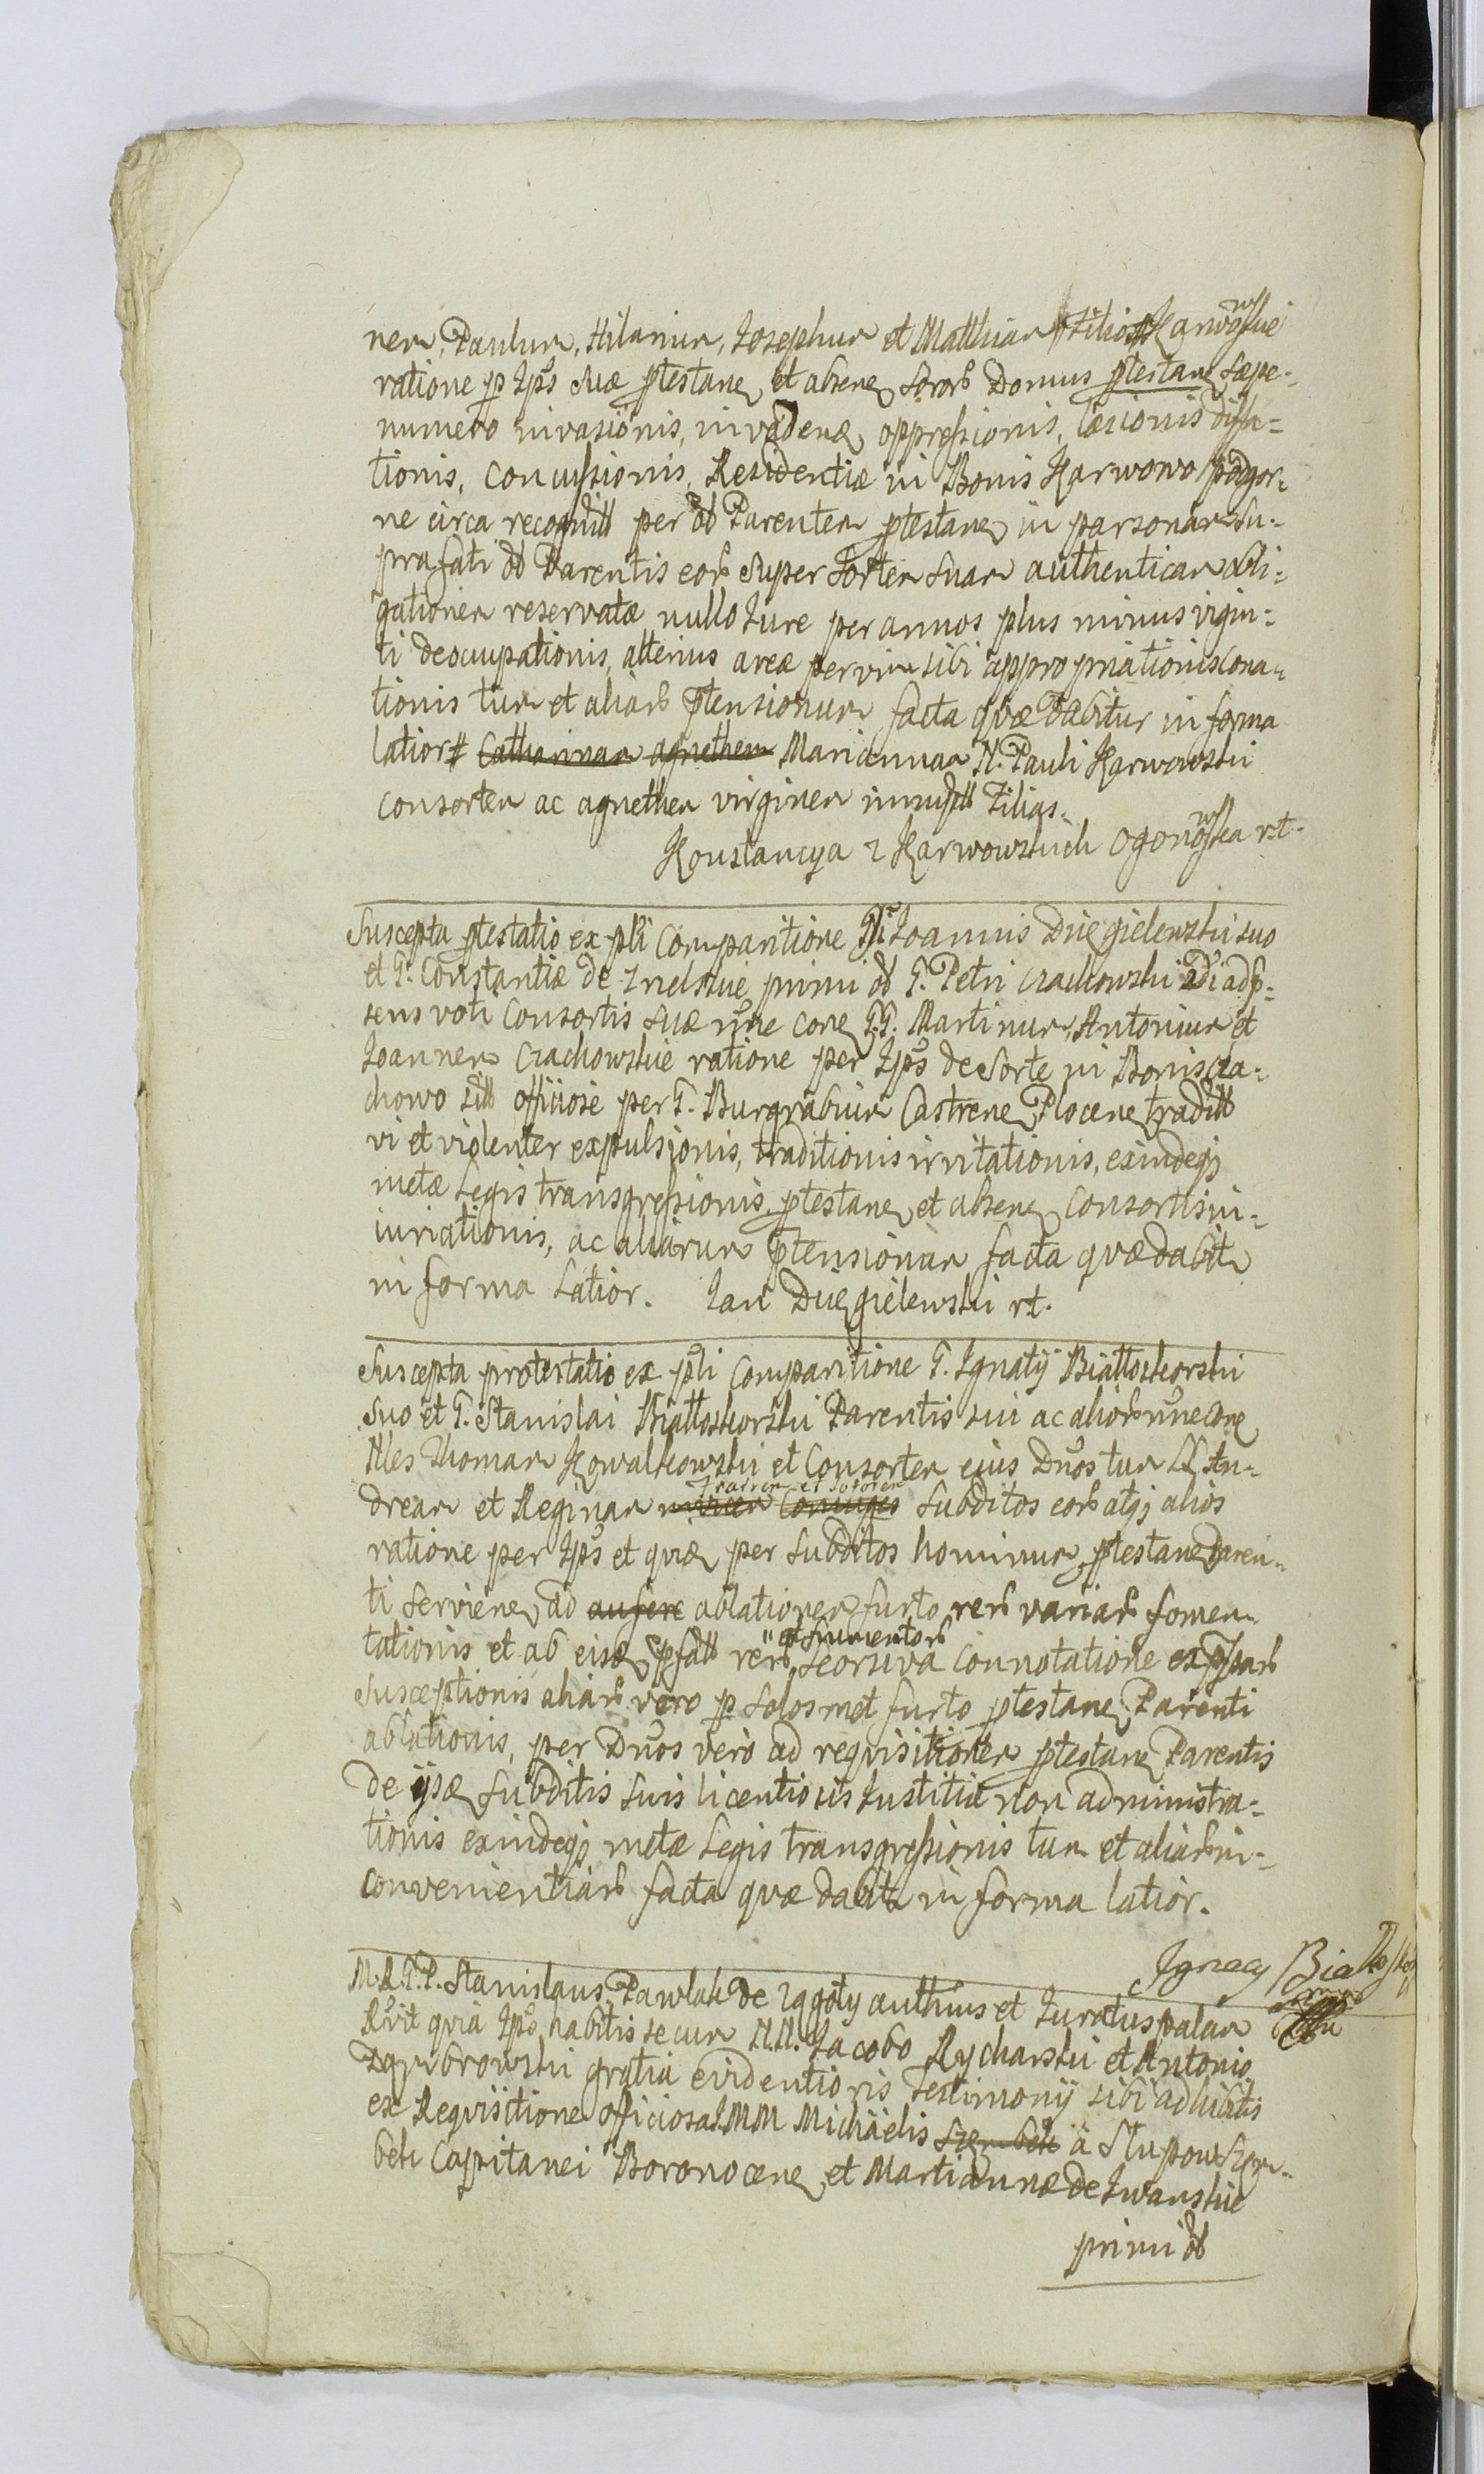 nem, Paulum, Hilarium, Josephum et Matthiam # Filios Karwowskie
ratione p Ips suæ ptestan et absen Soror Domus ptestan sæpe-
numero invasionis, invaden oppressionis, læsionis diffa=
tionis, concussionis, Residentiæ in Bonis Karwowo podgor=
ne circa recognitt per olb Parentem ptestan in personam Su=
prafati olb Parentis eor super Sortem suam authenticam obli=
gationem reservatæ nullo Jure per annos plus minus vigin=
ti deocupationis, alterius areæ per vim sibi appropriationis cona=
tionis tum et aliar ptensionum facta quæ dabitur in forma
latiori # Catharinam agnethem Mariannam N. Pauli Karwowski
consortem ac agnethem virginem innupt Filias.
Konstancya z Karwowskich Ogonowska rt.
Suscepta ptestatio ex psli Comparitione Joannis Dzięgielewski suo
et G. Constantiæ de primi olb G. Petri Czachowski 2di adp=
sens voti Consortis suæ nne con G.G. Martinum, Antonium et
Joannem Czachowskie ratione per Ips de Sorte in Bonis Cza=
chowo sibi officiose per G. Burgrabium Castren Plocen tradit
vi et violenter expulsionis, traditionis irritationis, exindeq
metæ Legis transgressionis, ptestan et absen Consortis in=
iuriationis, ac aliarum ptensionum facta quæ dabit
in forma Latior. Jan Dzięgielewski rt.
Suscepta protestatio ex psli Comparitione G. Ignatij Białłoskorski
Suo et G. Stanislai Białłoskorski Parentis sui ac alior nne con
Nles Thomam Kowalkowski et Consortem eius Dnos tum LL An=
dream et Reginam Fratrem et sororem Coniuges Subditos eor atq alios
ratione per Ips et qui per Subditos hominum ptestan Paren=
ti servien ad aufere ablationem furto rer variar fomen=
tationis et ab eisd pfatt rer et frumentor Seorsiva Connotatione
Susceptionis aliar vero p solosmet furto ptestan Parenti
ablationis, per Dnos vero ad requisitionem ptestan Parentis
de ijsd Subditis suis licentiosis Justitiæ non administra=
tionis exindeq metæ Legis transgressionis tum et aliar in=
convenientiar facta quæ dabit in forma latior.
Ignacy Białłoskor
M.R.G.P. Stanislaus Pawlak de Zggoty authius et Juratus palam
Rvit quia Ips habitis secum N.N. Jacobo Rycharski et Antonio
Zgrzbrowski gratia evidentioris Testimonij sibi adhibitis
ex Requisitione officiosa J.MM Michäelis Szembek à Słupow Szem=
bek Capitanei Boronocen et Martiannæ de Iwanskie
primi olb